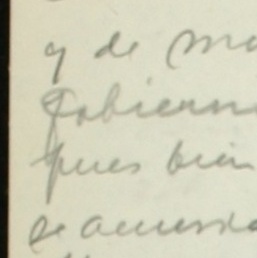 y de mo
Gobierno
pues bien
se acuerda